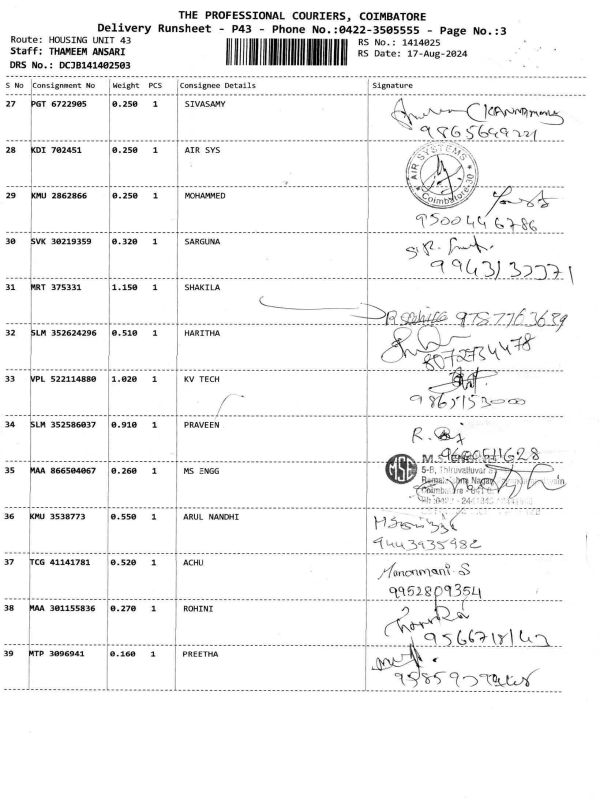 THE PROFESSIONAL COURIERS, COIMBATORE
Delivery Runsheet - P43 - Phone No.:0422-3505555 - Page No.:3
Route: HOUSING UNIT 43 RS No.: 1414025
Staff: THAMEEM ANSARI RS Date: 17-Aug-2024
DRS No.: DCJB141402503
S No Consignment No Weight PCS Consignee Details Signature
27 PGT 6722905 0.250 1 SIVASAMY
28 KDI 702451 0.250 1 AIR SYS
AIR SYSTEMS Coimbatore-30
29 KMU 2862866 0.250 1 MOHAMMED
9500446786
30 SVK 30219359 0.320 1 SARGUNA
31 MRT 375331 1.150 1 SHAKILA
9787763639
32 SLM 352624296 0.510 1 HARITHA
8072734478
33 VPL 522114880 1.020 1 KV TECH
9865153000
34 SLM 352586037 0.910 1 PRAVEEN
35 MAA 866504067 0.260 1 MS ENGG
MSE
5-B, Thiruvalluvar
36 KMU 3538773 0.550 1 ARUL NANDHI
9443935982
37 TCG 41141781 0.520 1 ACHU
Manonmani S
9952809354
38 MAA 301155836 0.270 1 ROHINI
39 MTP 3096941 0.160 1 PREETHA